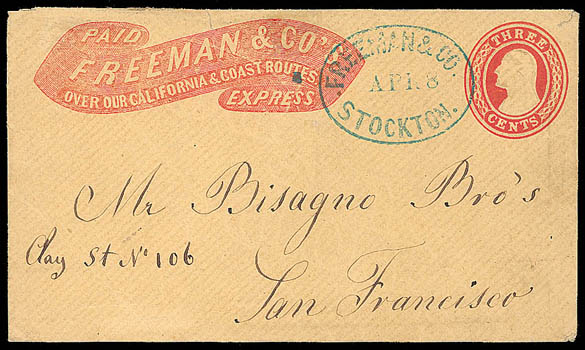 PAID
FREEMAN & CO'S
OVER OUR CALIFORNIA & COAST ROUTES
EXPRESS
FREEMAN & CO.
APR 8
STOCKTON.
THREE
CENTS
Mr Bisagno Bro's
Clay St No 106
San Francisco